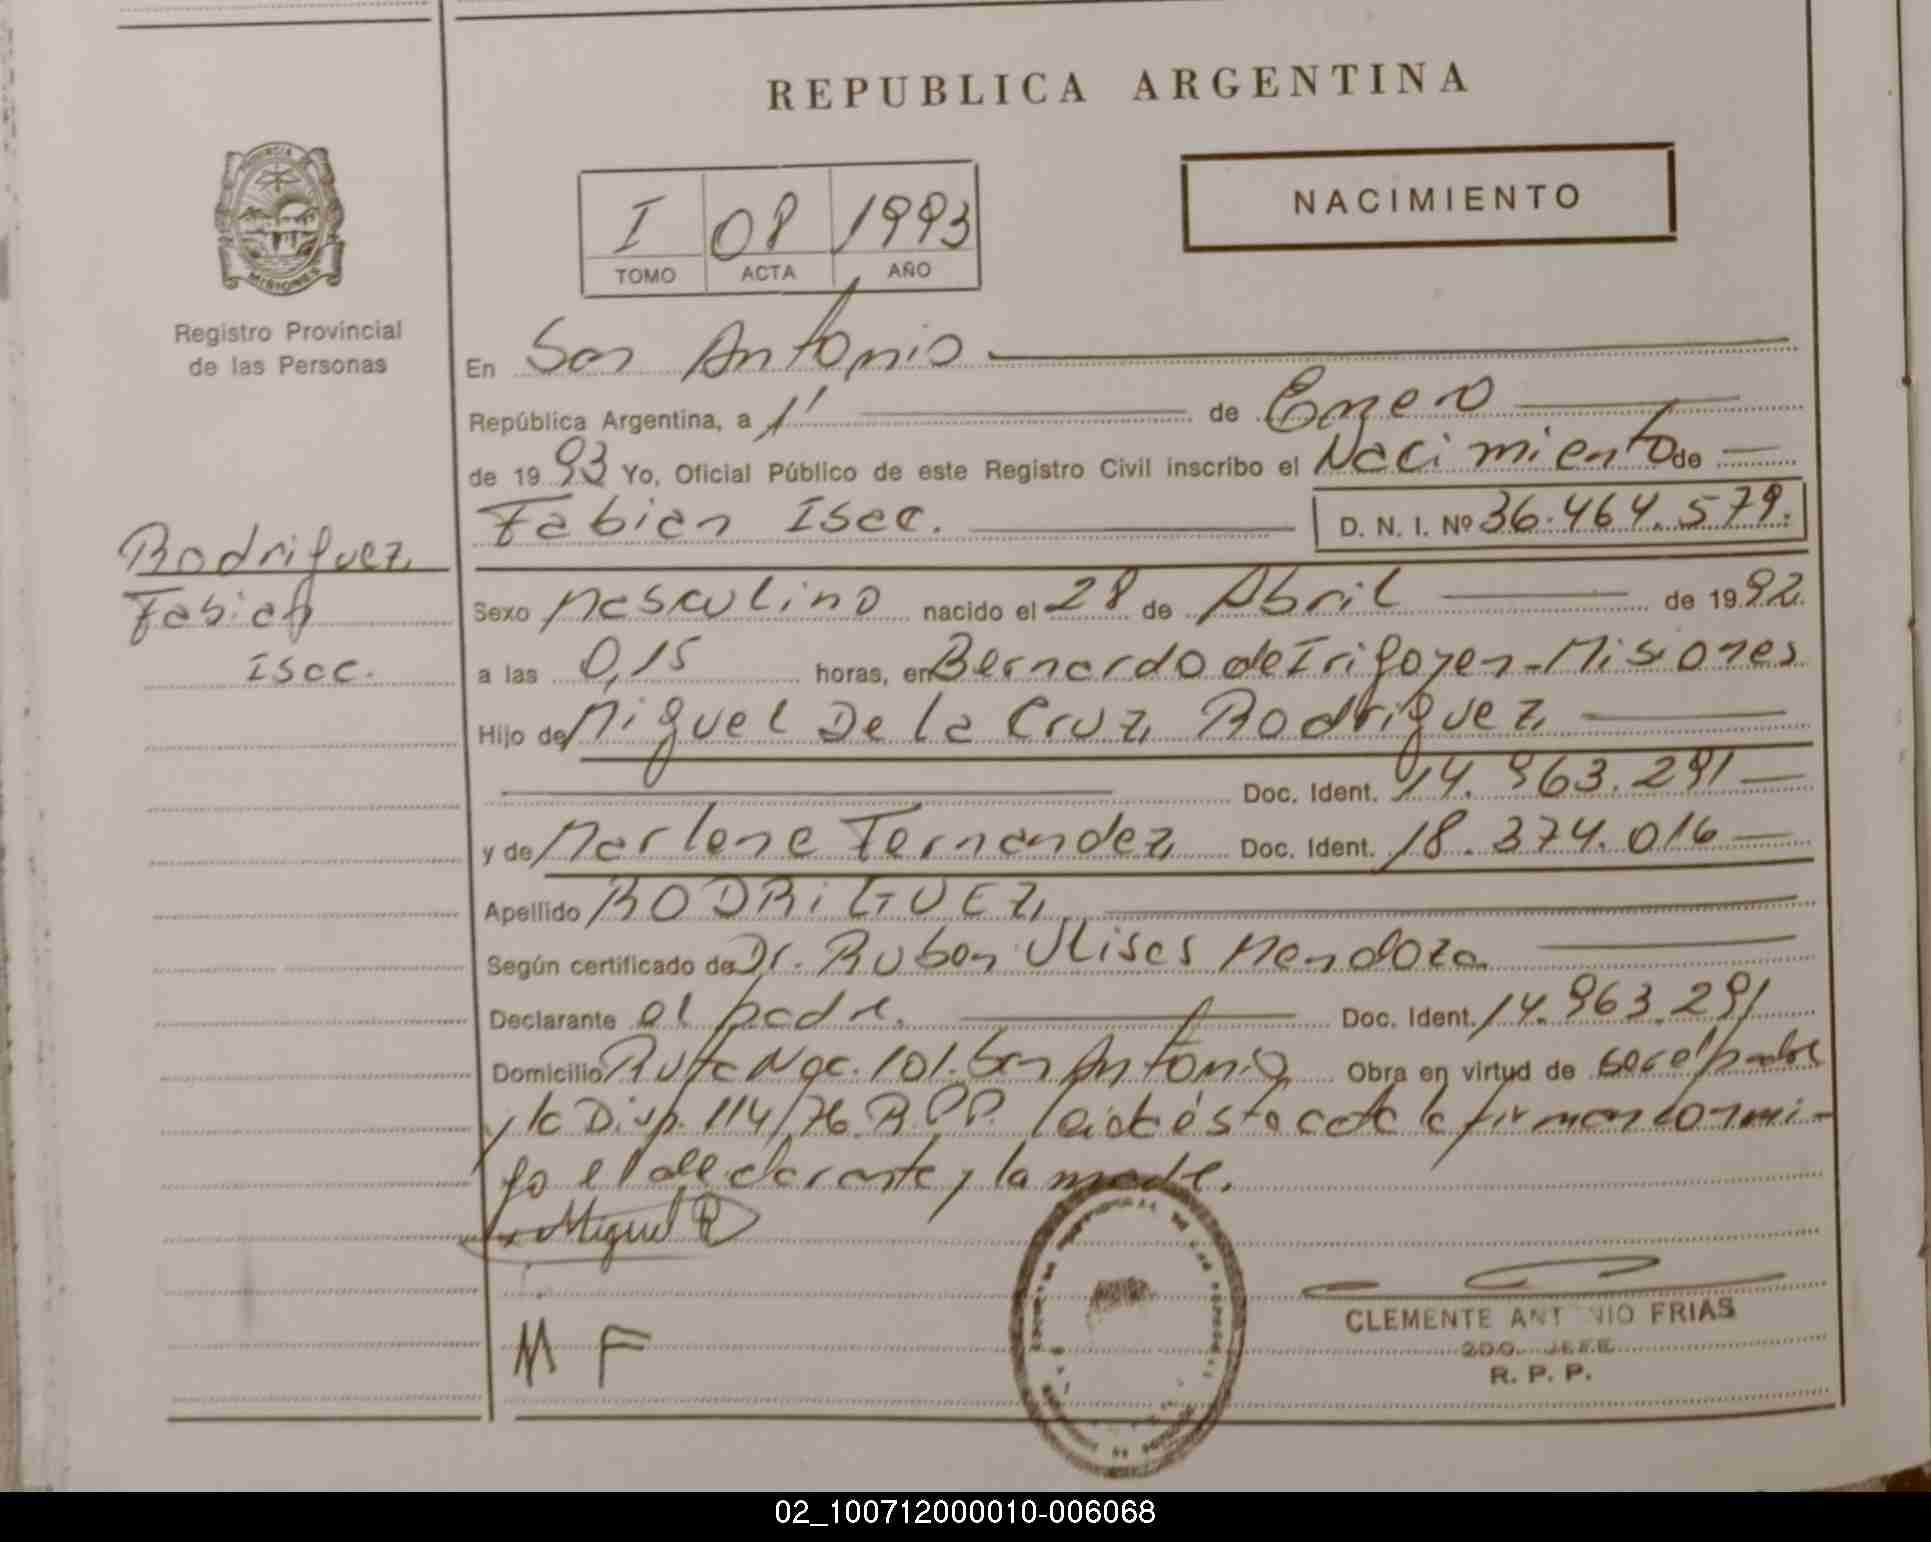 REPUBLICA ARGENTINA
NACIMIENTO
I 08 1993
TOMO ACTA AÑO
MISIONES
Registro Provincial
de las Personas
En San Antonio
República Argentina, a 11 de Enero
de 1993 Yo, Oficial Público de este Registro Civil inscribo el Nacimiento de
Fabian Isac. D. N. I. Nº 36.464.579.
Rodriguez,
Fabian
Isac.
Sexo Masculino nacido el 28 de Abril de 1992.
a las 0,15 horas, en Bernardo de Irigoyen - Misiones
Hijo de Miguel De la Cruz Rodriguez
Doc. Ident. 14.963.291
y de Marlene Fernandez Doc. Ident. 18.374.016
Apellido RODRIGUEZ
Según certificado de Dr. Ruben Ulises Mendoza
Declarante el padre. Doc. Ident. 14.963.291
Domicilio Ruta Nac. 101. San Antonio Obra en virtud de ser el padre
y la Disp. 114/76 R.P.P. Leida ésta acta la firman conmi-
go el declarante y la madre.
Miguel R
M F
CLEMENTE ANTONIO FRIAS
2DO. JEFE
R. P. P.
02_100712000010-006068